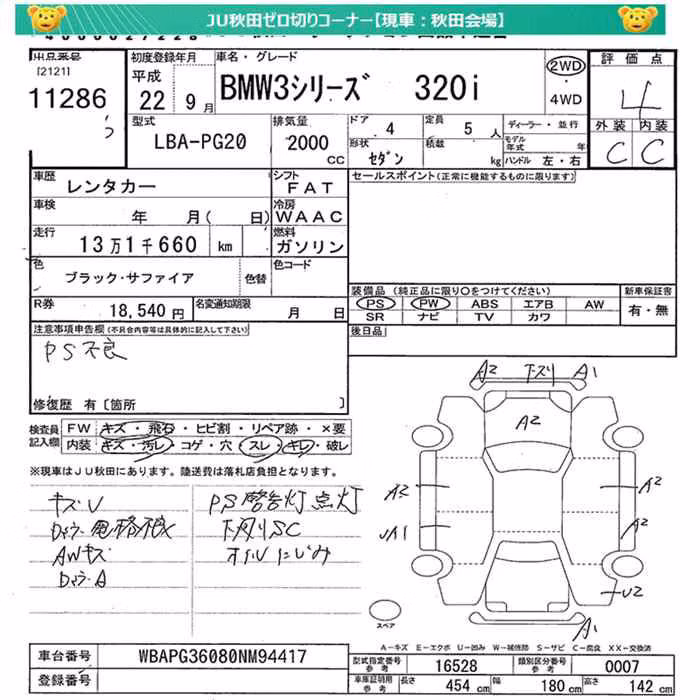 JU秋田ゼロ切りコーナー【現車：秋田会場】
出品番号
[2121]
11286
初度登録年月
平成
22 9月
車名・グレード
BMW3シリーズ 320i
2WD
・
4WD
評価点
4
外装 内装
C C
型式
LBA-PG20
排気量
2000
CC
ドア 4
定員 5 人
形状 セダン
積載 kg
ディーラー・並行
モデル年式 年
ハンドル 左・右
車歴
レンタカー
シフト
FAT
セールスポイント（正常に機能するものに限ります）
車検
年 月( 日)
冷房
WAAC
走行
13万1千660 km
燃料
ガソリン
色
ブラック・サファイア
色替
色コード
R券
18,540 円
名変通知期限
月 日
装備品（純正品に限り〇をつけてください）
PS PW ABS エアB AW
SR ナビ TV カワ
新車保証書
有・無
後日品
注意事項申告欄（不具合内容等は具体的に記入して下さい）
PS不良
修復歴 有〔箇所 〕
検査員記入欄
FW キズ・飛石・ヒビ割・リペア跡・×要
内装 キズ・汚レ・コゲ・穴・スレ・キレ・破レ
※現車はJU秋田にあります。陸送費は落札店負担となります。
キズU
AWキズ
PS警告灯点灯
下スリSC
オイルにじみ
A2 下スリ A1
A2
A2 A2
A2
U2
A1
スペア
A－キズ E－エクボ U－凹み W－補修跡 S－サビ C－腐食 XX－交換済
車台番号
WBAPG36080NM94417
登録番号
型式指定番号 参考 16528
類別区分番号 参考 0007
車庫証明用 参考 長さ 454 cm 幅 180 cm 高さ 142 cm